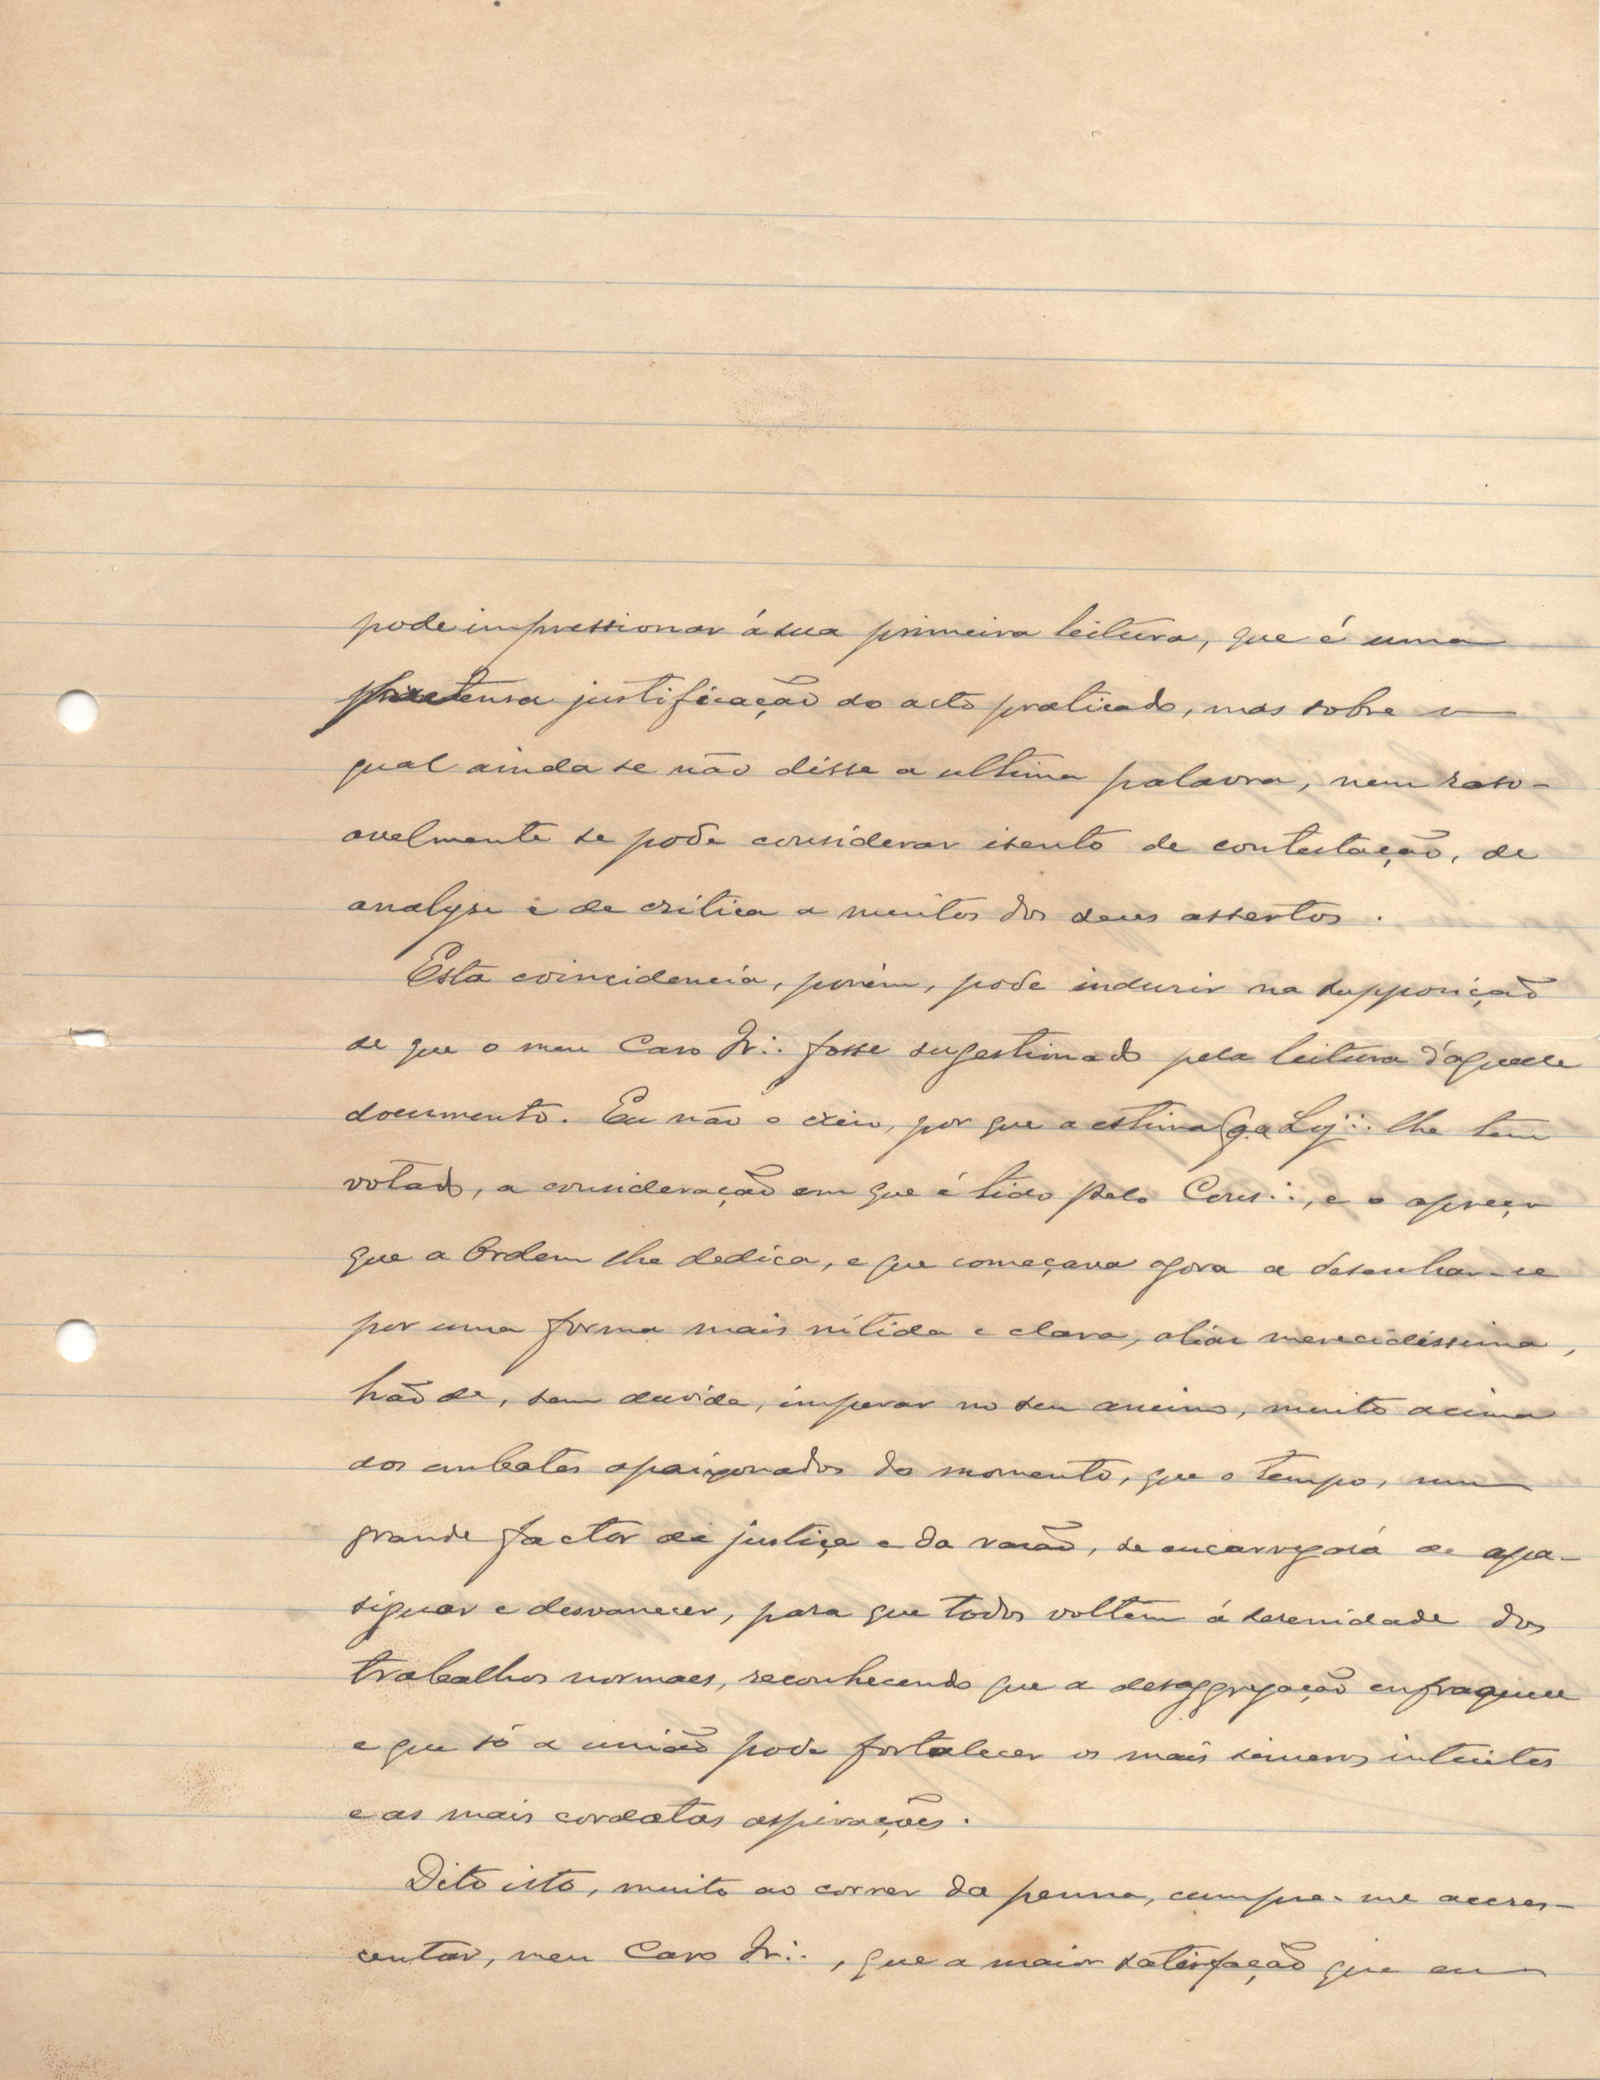 pode impressionar á sua primeira leitura, que é uma
pretensa justificação do acto praticado, mas sobre o
qual ainda se não disse a ultima palavra, nem raso-
avelmente se pode considerar isento de contestação, de
analyse e de critica a muitos dos seus assertos.
Esta coincidencia, porém, pode induzir na supposição
de que o meu Caro Ir∴ fosse sugestionado pela leitura d'aquelle
documento. Eu não o creio, por que a estima q a L∴ lhe tem
votado, a consideração em que é tido pelo Cons∴, e o apreço
que a Ordem lhe dedica, e que começava agora a desenhar-se
por uma forma mais nitida e clara, aliás merecidissima,
hão de, sem duvida, imperar no seu animo, muito acima
dos embates apaixonados do momento, que o tempo, um
grande factor de justiça e da rasão, se encarregará de apa-
siguar e desvanecer, para que todos voltem á serenidade dos
trabalhos normaes, reconhecendo que a desaggregação enfraquece
e que só a união pode fortalecer os mais sinceros intuitos
e as mais cordatas aspirações.
Dito isto, muito ao correr da penna, cumpre-me accres-
centar, meu Caro Ir∴, que a maior satisfação que eu